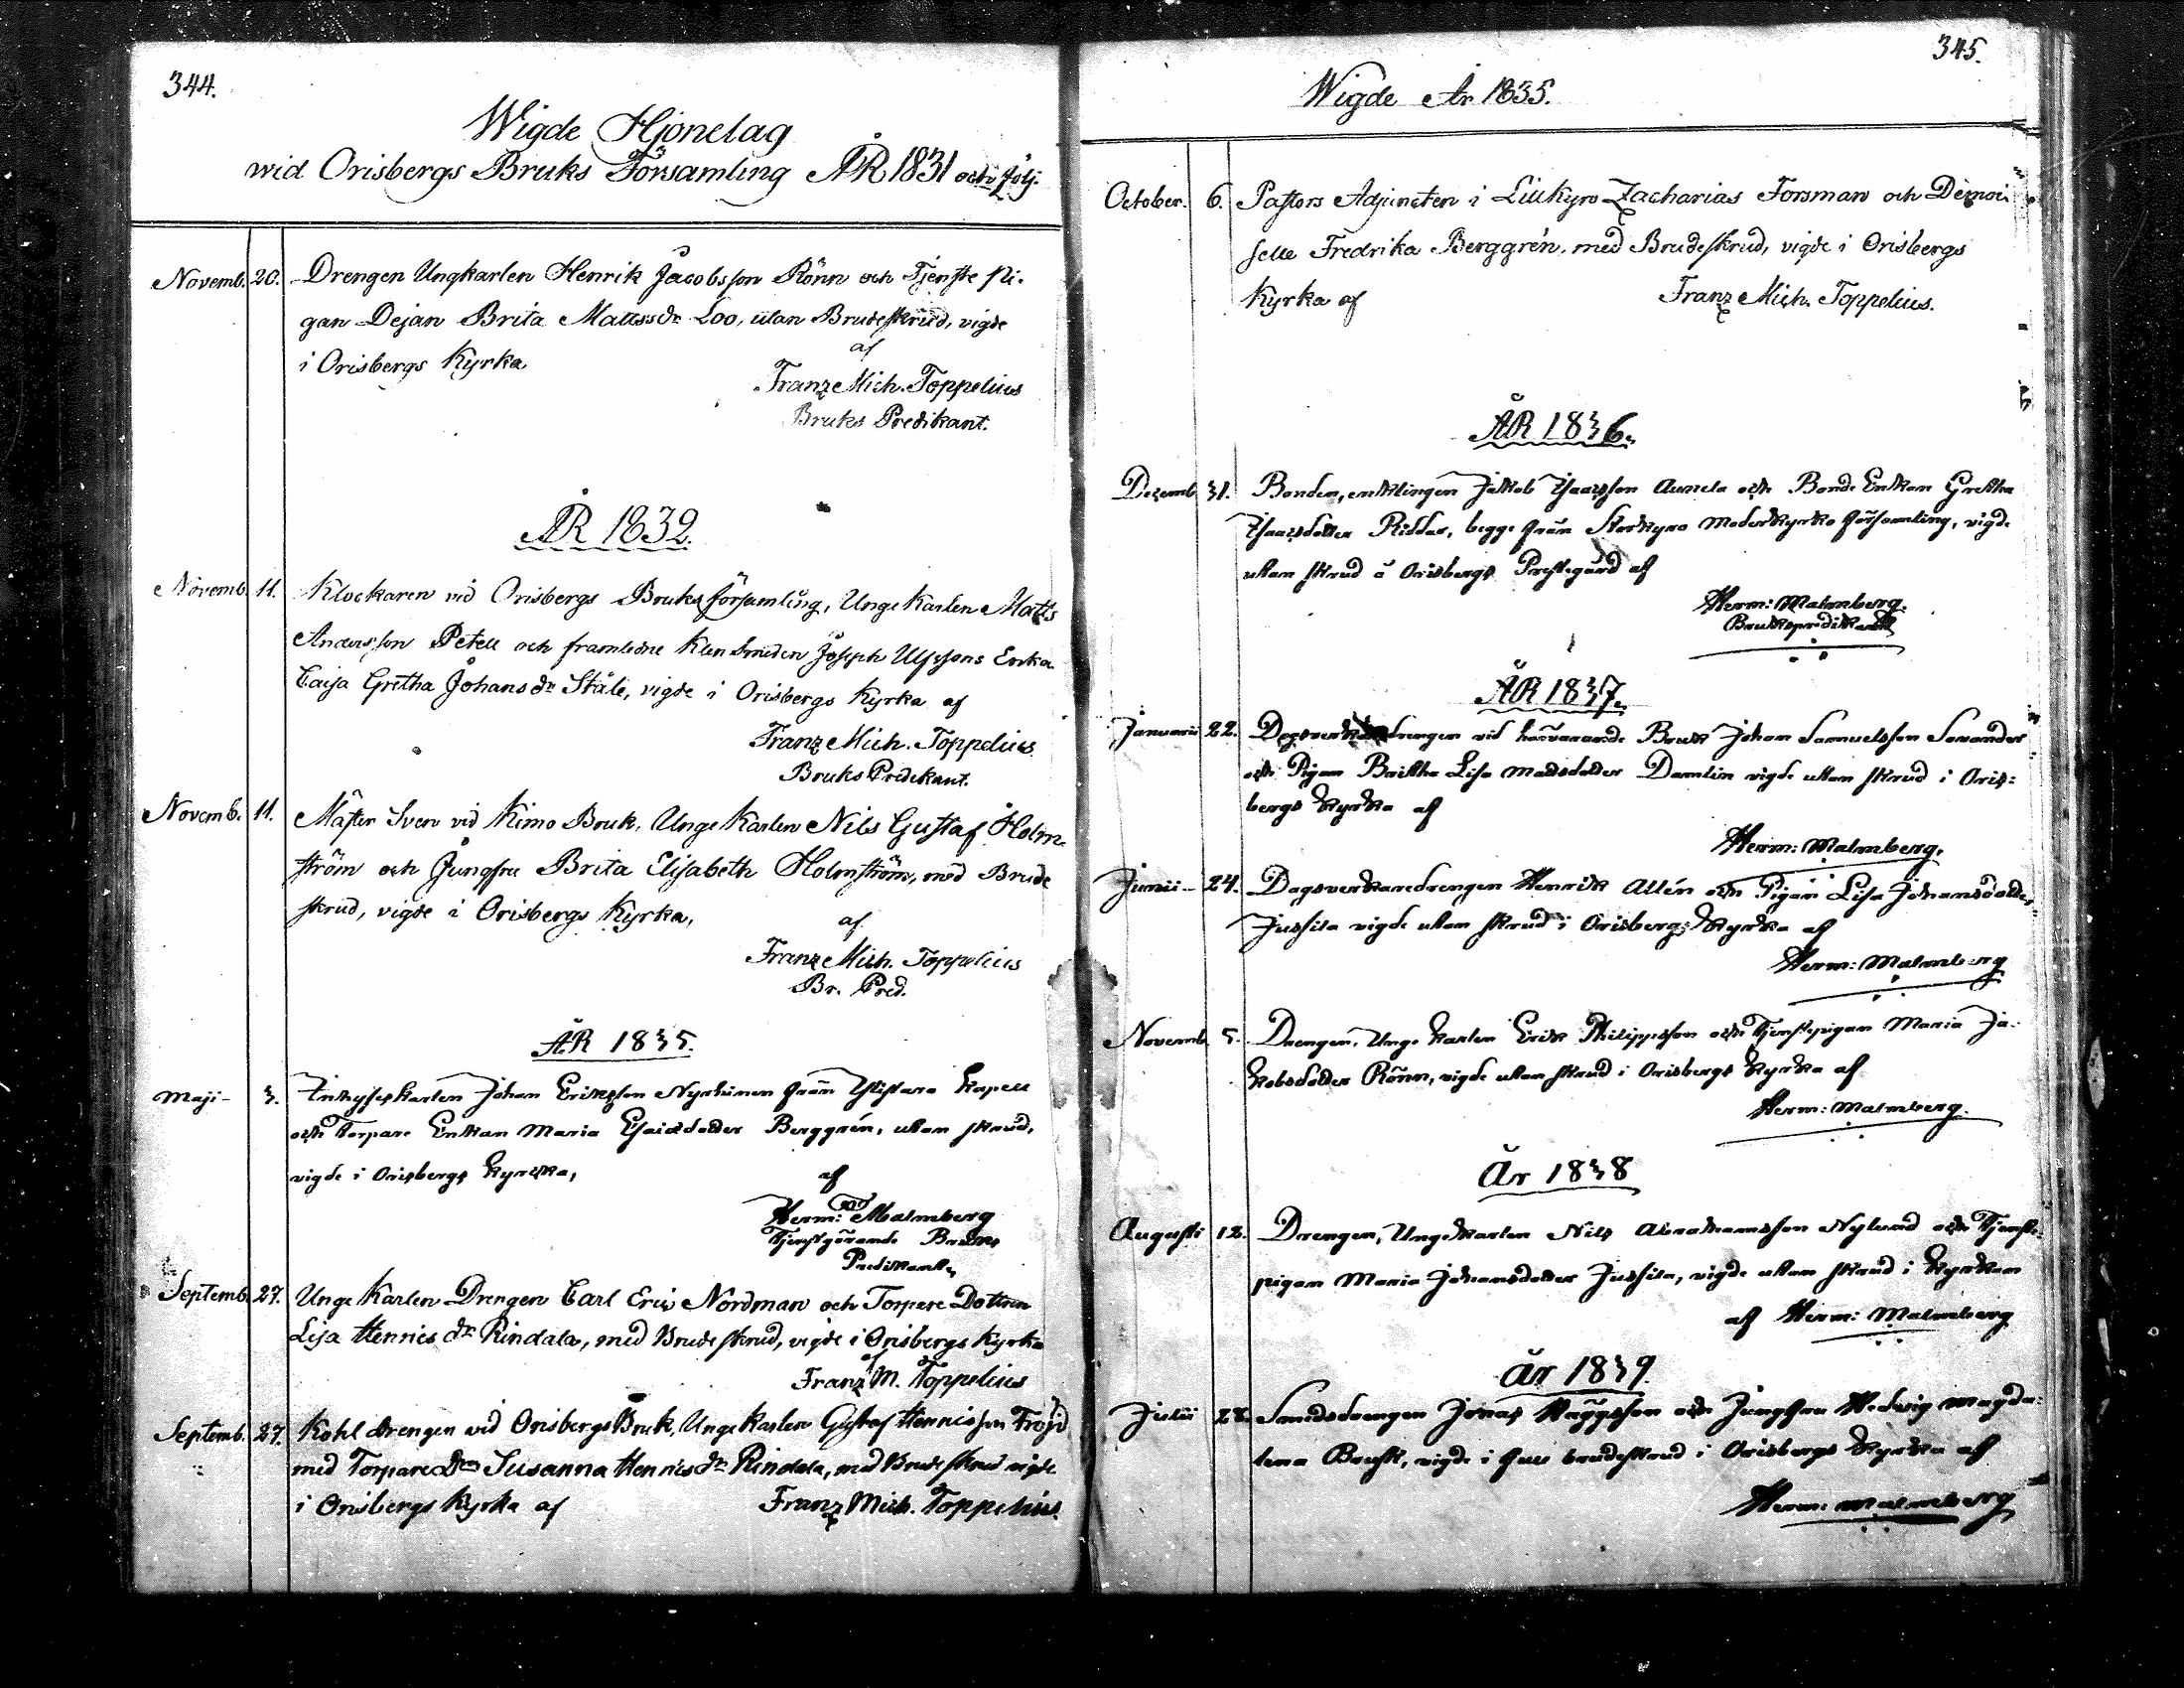 344.
Wigde Hjonelag
wid Orisbergs Bruks Församling ÅR 1831 och följ.
Novemb. 20. Drengen Ungkarlen Henrik Jacobsson Rönn och Tjenste Pi-
gan Dejan Brita Mattsdr Loo, utan Brudeskrud, vigde
i Orisbergs Kyrka
af
Franz Mich. Toppelius
Bruks Predikant.
ÅR 1832.
Novemb. 11. Klockaren vid Orisbergs Bruks församling, Unge Karlen Matts
Andersson Petell och framledne Klen Smeden Joseph Ulfssons Enka
Caisa Gretha Johansdr Ståle, vigde i Orisbergs Kyrka af
Franz Mich. Toppelius
Bruks Predikant.
Novemb. 11. Mäster Sven vid Kimo Bruk, Unge Karlen Nils Gustaf Holm-
ström och Jungfru Brita Elisabeth Holmström, med Brude
skrud, vigde i Orisbergs Kyrka,
af
Franz Mich. Toppelius
Br. Pred.
ÅR 1835.
Maji- 3. Inhyseskarlen Johan Ericsson Nyrhinen från Ylistaro Kapell
och Torpare Enkan Maria Esaiædotter Berggrén, utan skrud,
vigde i Orisbergs Kyrcka,
af
Herm: Malmberg
Tjenstgörande Bruks
Predikant
Septemb. 27. Unge Karlen Drengen Carl Eric Nordman och Torpare Dottren
Lisa Henricsdr Rindala, med Brudeskrud, vigde i Orisbergs Kyrka
af
Franz M. Toppelius
Septemb. 27. Kohl drengen vid Orisbergs Bruk, Unge Karlen Gustaf Henricsson Fröjd
med Torpare Susanna Henricsdr Rindala, med Brudeskrud vigde
i Orisbergs Kyrka af Franz Mich. Toppelius.
345.
Wigde År 1835.
October. 6. Pastors Adjuncten i Lillkyro Zacharias Forsman och Demoi-
selle Fredrika Berggrén, med Brudeskrud, vigde i Orisbergs
Kyrka af Franz Mich. Toppelius.
ÅR 1836.
Dezemb. 31. Bonden, enklingen Jakob Isacsson Aunela och Bonde Enkan Gretha
Isacsdotter Riddar, begge från Storkyro Moderkyrko församling, vigde
utan skrud å Orisbergs Prestegård af
Herm: Malmberg.
Brukspredikant
ÅR 1837.
Januarii 22. drengen vid härvarande Bruk Johan Samuelsson Savander
och Pigan Britha Lisa Matsdotter Damlin vigde utan skrud i Oris-
bergs Kyrka af
Herm: Malmberg.
Junii- 24. Dagsverkaredrengen Henrik Allén och Pigan Lisa Johansdotter
Jussila vigde utan skrud i Orisbergs Kyrka af
Herm: Malmberg
Novemb. 5. Drengen, Unge Karlen Erik Philippsson och Tjenstepigan Maria Ja-
kobsdotter Rönn, vigde utan skrud i Orisbergs Kyrka af
Herm: Malmberg.
År 1838
Augusti 12. Drengen, Ungekarlen Nils Abrahamsson Nylund och Tjenste-
pigan Maria Johansdotter Jussila, vigde utan skrud i Kyrkan
af Herm: Malmberg
År 1839.
Julii 28. Smedsdrengen Jonas Häggsson och Jungfru Hedvig Magda-
lena Brusk, vigde i full brudeskrud i Orisbergs Kyrka af
Herm: Malmberg